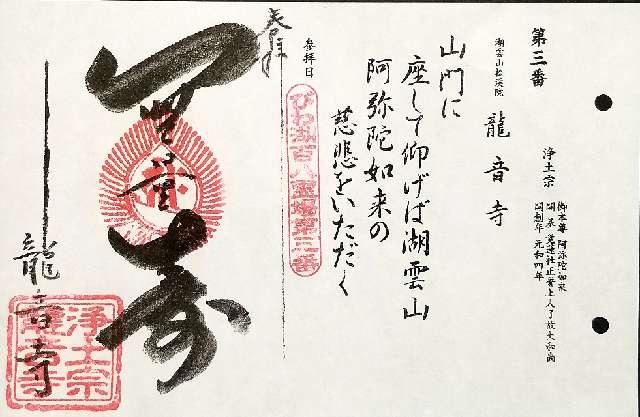 第三番
湖雲山松溪院
龍音寺
浄土宗
御本尊 阿弥陀如来
開創年 元和四年
山門に
座して仰げば湖雲山
阿弥陀如来の
慈悲をいただく
参拝日
びわ湖百八霊場第三番
奉拝
無量寿
龍音寺
浄土宗
龍音寺